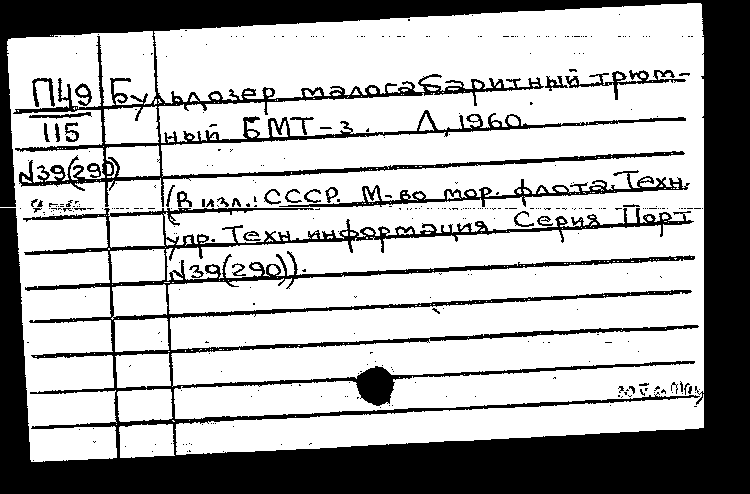 П49 Бульдозер малогабаритный трюм-
115 ный БМТ-3. Л, 1960.
N39(290)
(В изд.: СССР. М-во мор. флота. Техн.
упр. Техн. информация. Серия Порт
N39(290)).